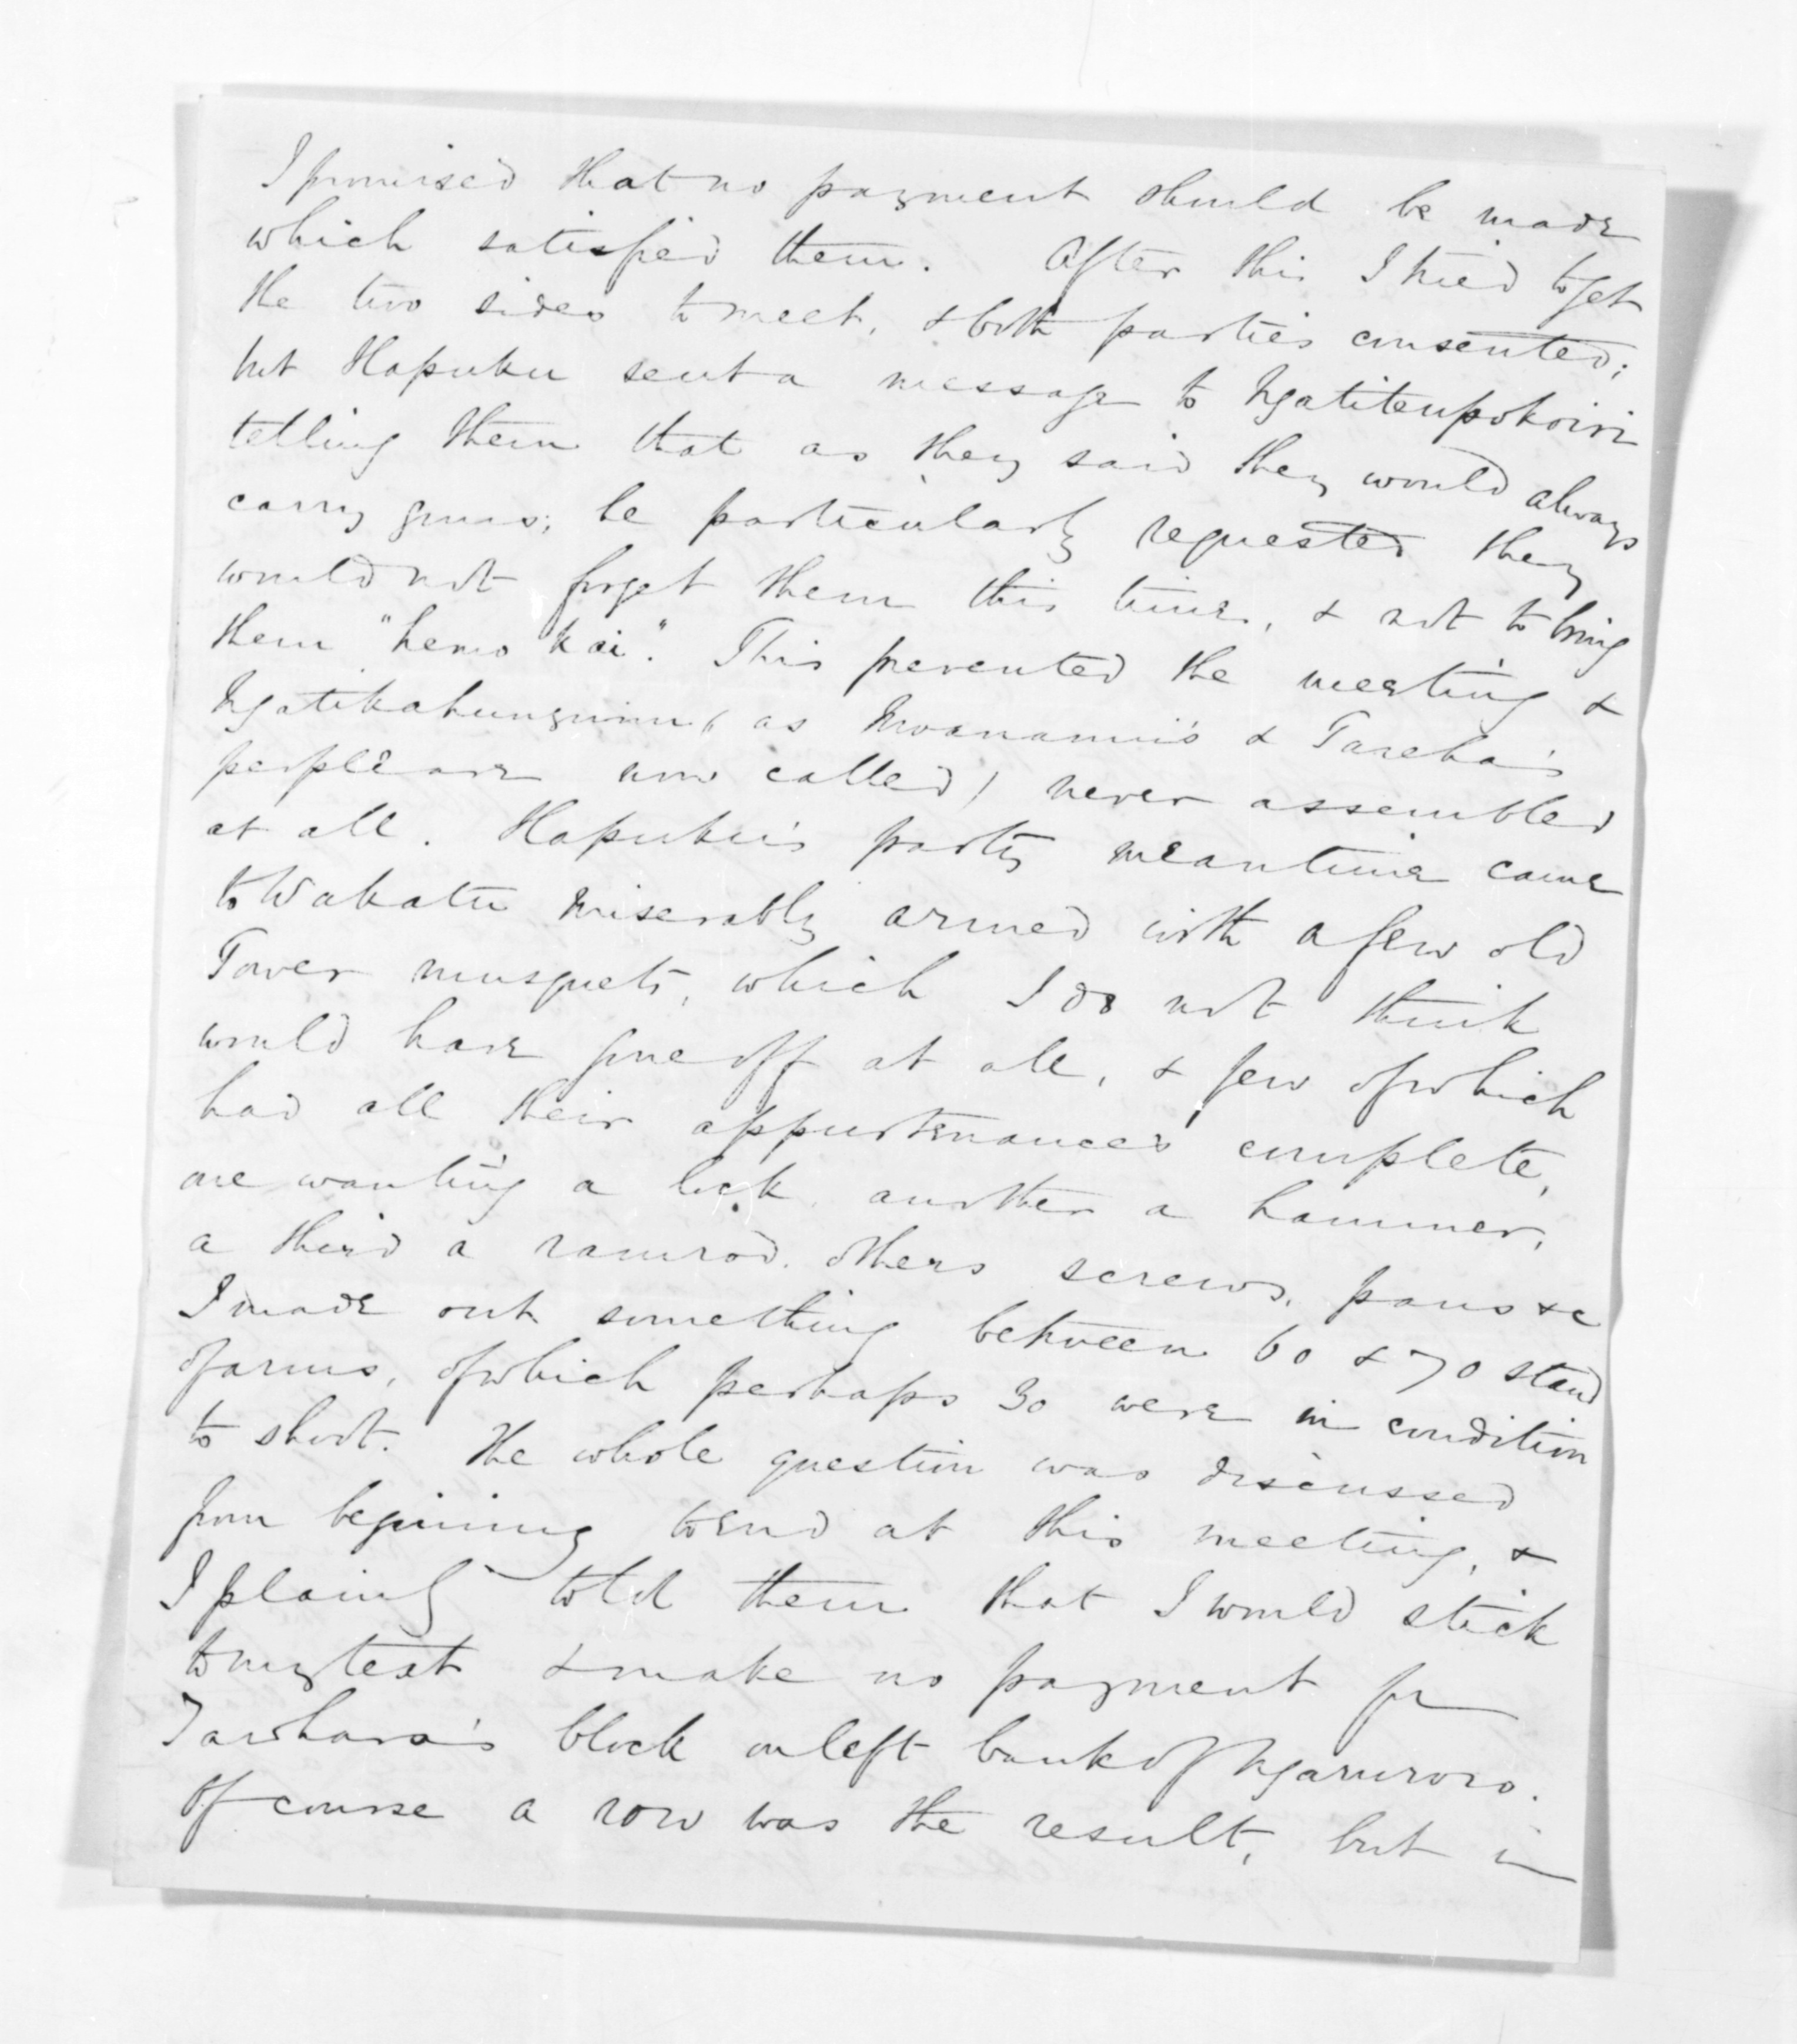 I promised that no payment should be made
which satisfied them. After this I tried to get
the two sides to meet, & both parties consented;
but Hapuku sent a message to Ngatiteupokoiri
telling them that as they said they would always
carry guns; he particularly requested they
would not forget them this time, & not to bring
them "hemo kai". This prevented the meeting &
Ngatikahungunu (as Moananui's & Tareha's
people are now called) never assembled
at all. Hapuku's party meantime came
to Wakatu miserably armed with a few old
Tower musquets, which I do not think
would have gone off at all, & few of which
had all their appurtenances complete,
one wanting a lock another a hammer,
a third a ramrod. others screws, pans &c
I made out something between 60 & 70 stand
of arms, of which perhaps 30 were in condition
to shoot. The whole question was discussed
from begining to end at this meeting, &
I plainly told them that I would stick
to my text & make no payment for
Tawhara's block on left bank of Ngaruroro.
Of course a row was the result, but in